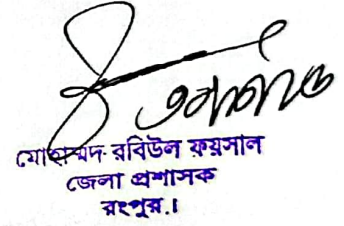 মোহাম্মদ রবিউল ফয়সাল
জেলা প্রশাসক
রংপুর।